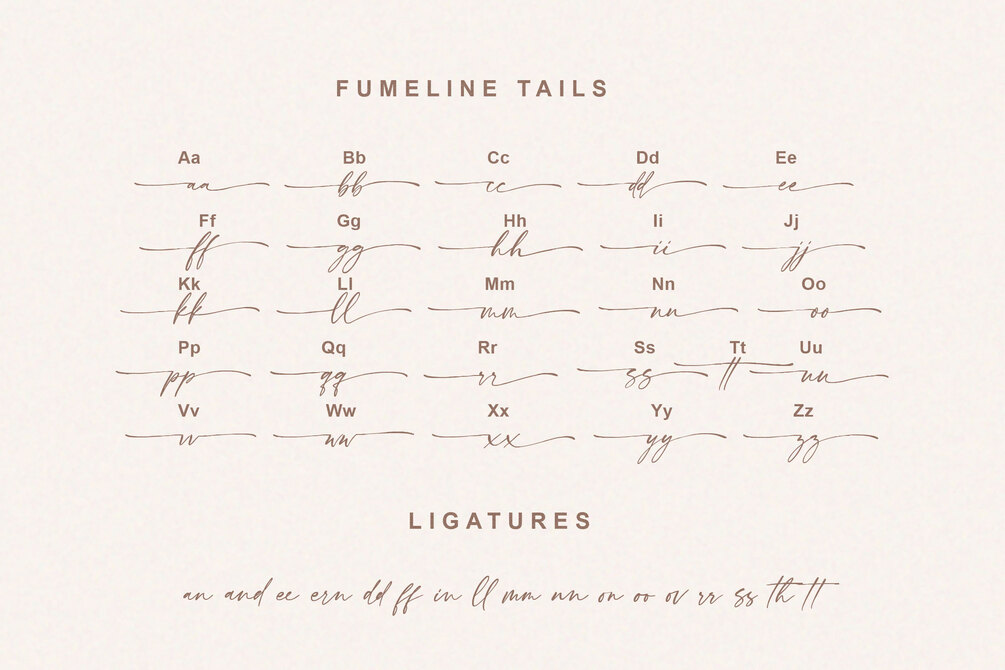 FUMELINE TAILS
Aa Bb Cc Dd Ee
aa bb cc dd ee
Ff Gg Hh Ii Jj
ff gg hh ii jj
Kk Ll Mm Nn Oo
kk ll mm nn oo
Pp Qq Rr Ss Tt Uu
pp qq rr ss tt uu
Vv Ww Xx Yy Zz
vv ww xx yy zz
LIGATURES
an and ee ern dd ff in ll mm nn on oo ov rr ss th tt